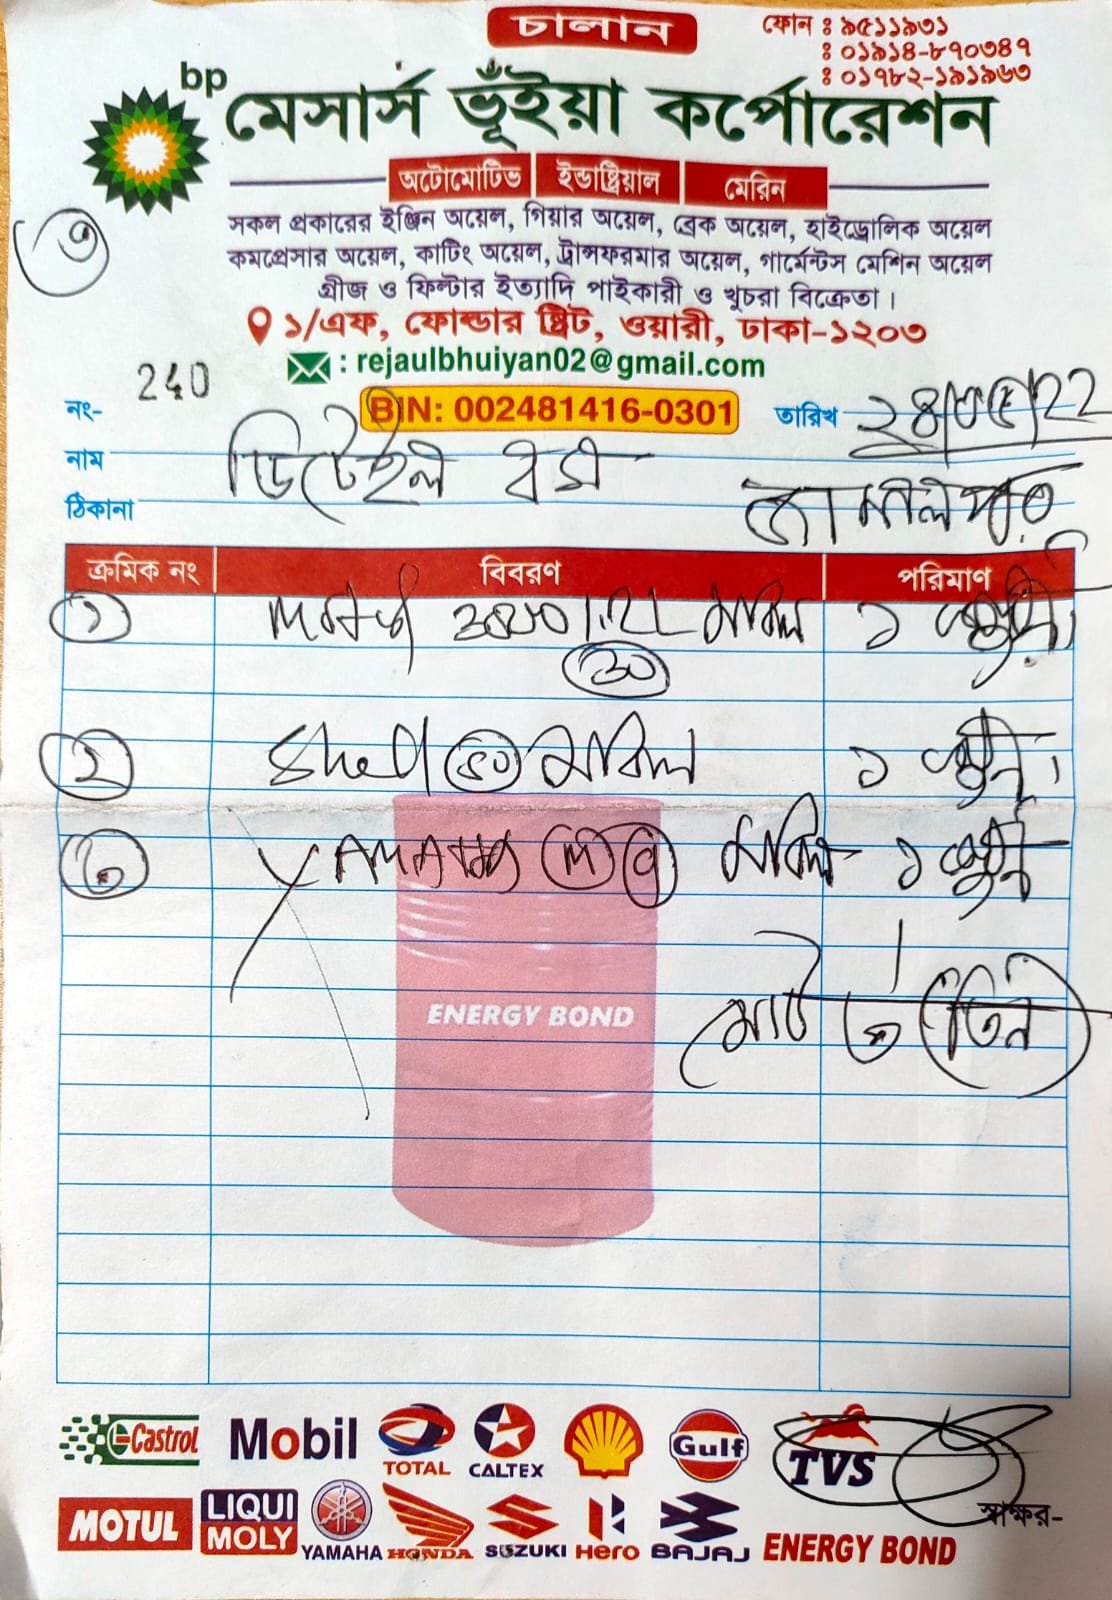 চালান
ফোন : ৯৫১১৯৩১
: ০১৯১৪-৮৭০৩৪৭
: ০১৭৮২-১৯১৯৬৩
bp
মেসার্স ভূঁইয়া কর্পোরেশন
অটোমোটিভ ইন্ডাষ্ট্রিয়াল মেরিন
সকল প্রকারের ইঞ্জিন অয়েল, গিয়ার অয়েল, ব্রেক অয়েল, হাইড্রোলিক অয়েল
কমপ্রেসার অয়েল, কাটিং অয়েল, ট্রান্সফরমার অয়েল, গার্মেন্টস মেশিন অয়েল
গ্রীজ ও ফিল্টার ইত্যাদি পাইকারী ও খুচরা বিক্রেতা।
৩
১/এফ, ফোল্ডার ষ্ট্রিট, ওয়ারী, ঢাকা-১২০৩
: rejaulbhuiyan02@gmail.com
নং- 240
BIN: 002481416-0301
তারিখ
নাম ডিটেইল
ঠিকানা জামালপুর
ক্রমিক নং বিবরণ পরিমাণ
১ মবিল ১
30
২ Shell মবিল ১
৩ YAMAHA মবিল ১
মোট ৩ তিন
ENERGY BOND
Castrol Mobil TOTAL CALTEX Gulf TVS
স্বাক্ষর-
MOTUL LIQUI MOLY YAMAHA HONDA SUZUKI Hero BAJAJ ENERGY BOND